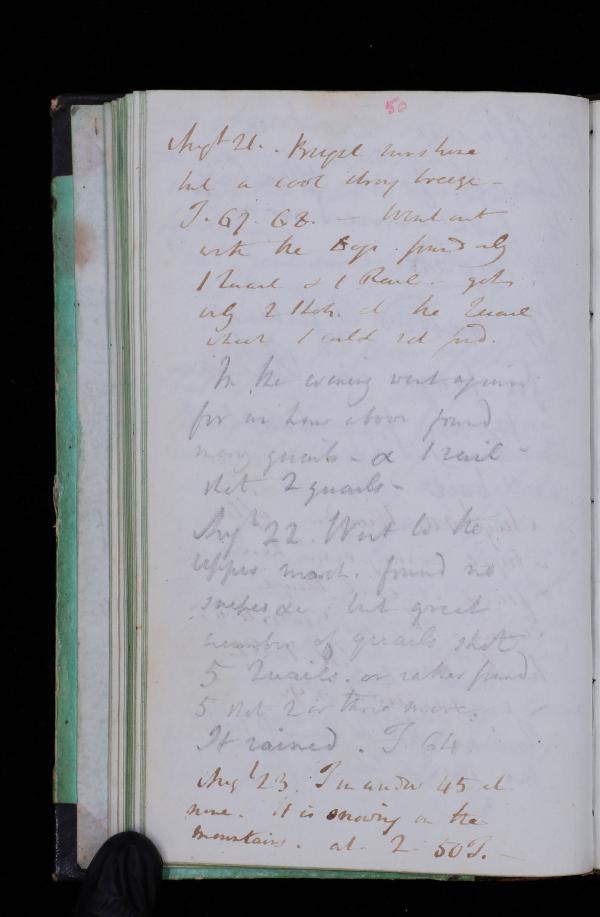 50
Augt 21. Bright sunshine
but a cool strong breeze -
T. 67. 68. - Went out
with the dogs. found only
1 Quail & 1 Rail - got
only 2 shots at the Quail
which I could not find.
In the evening went again
for an hour above found
many quails - & 1 rail -
shot 2 quails -
Augt 22. Went to the
upper marsh. found no
snipes &c but great
number of quails shot
5 Quails. or rather found
5 shot 2 or three more.
It rained. T. 64
Augt 23. T in window 45 at
nine. It is snowing on the
mountains. at 2 50 T. -